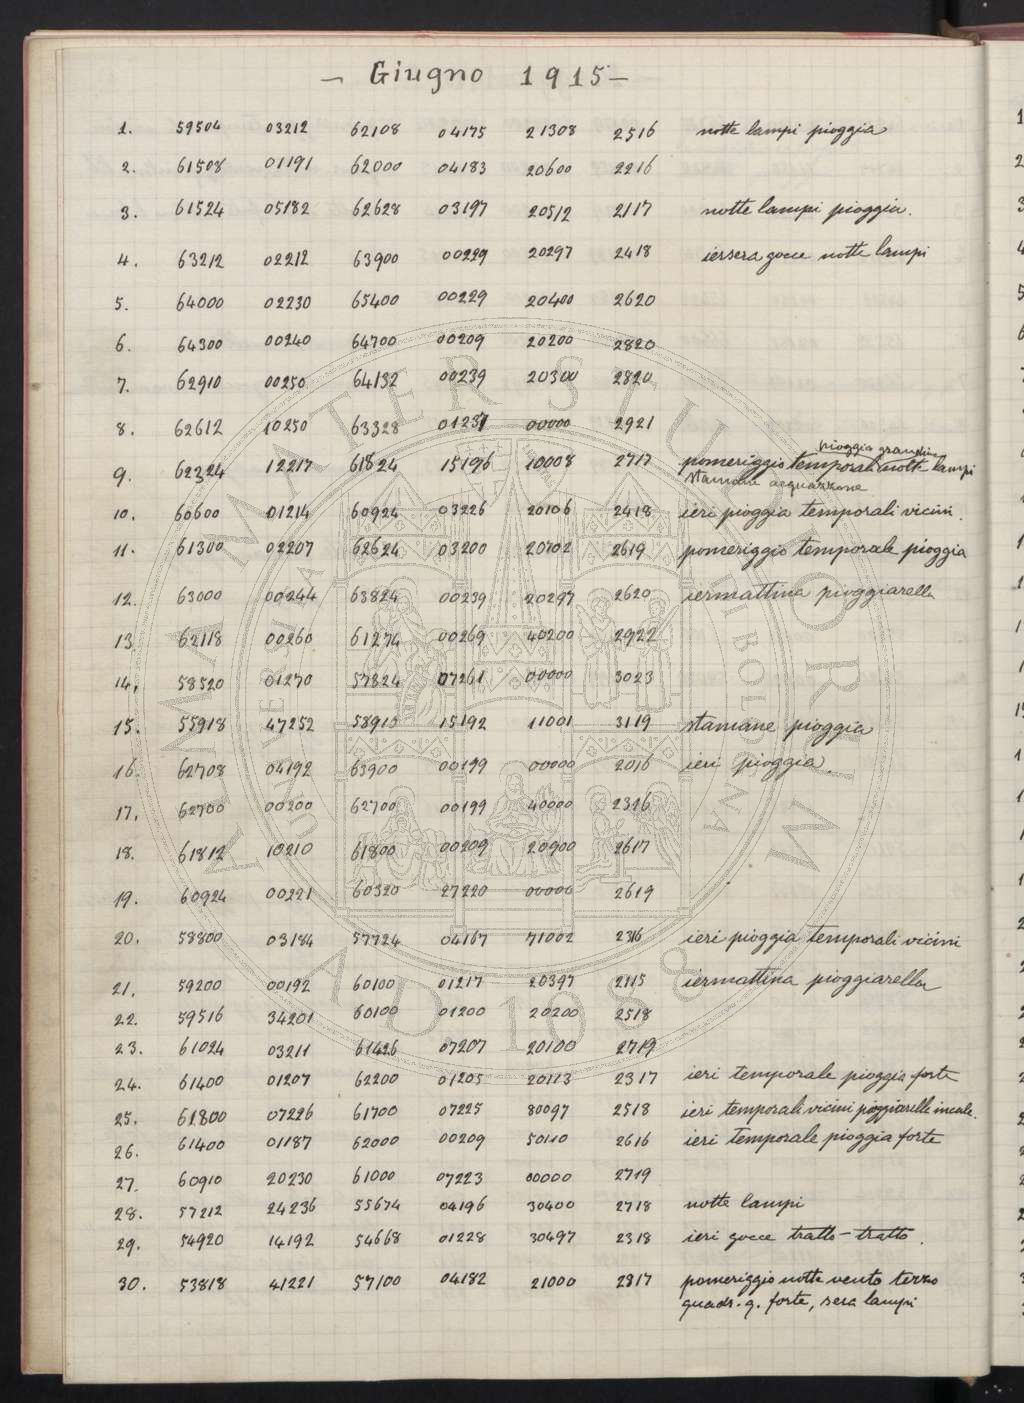 – Giugno 1915 –
1. 59504 03212 62108 04175 21308 2516 notte lampi pioggia
2. 61508 01191 62000 04183 20600 2216
3. 61524 05182 62628 03197 20512 2117 notte lampi pioggia.
4. 63212 02212 63900 00229 20297 2418 iersera gocce notte lampi
5. 64000 02230 65400 00229 20400 2620
6. 64300 00240 64700 00209 20200 2820
7. 62910 00250 64132 00239 20300 2820
8. 62612 10250 63328 01231 00000 2921
pioggia grandine
9. 62324 12217 61824 15196 10008 2717 pomeriggio temporali molti lampi
stamane acquazzone
10. 60600 01214 60924 03226 20106 2418 ieri pioggia temporali vicini.
11. 61300 02207 62624 03200 20702 2619 pomeriggio temporale pioggia
12. 63000 00244 63824 00239 20297 2620 iermattina pioggiarella
13. 62118 00260 61274 00269 40200 2922
14. 58520 01270 57824 07261 00000 3023
15. 55918 47252 58910 15192 11001 3119 stamane pioggia
16. 62708 04192 63900 00199 00000 2016 ieri pioggia.
17. 62700 00200 62700 00199 40000 2316
18. 61812 10210 61800 00209 20900 2617
19. 60924 00221 60320 27220 00000 2619
20. 58800 03184 57724 04167 71002 2316 ieri pioggia temporali vicini
21. 59200 00192 60100 01217 20397 2115 iermattina pioggiarella
22. 59516 34201 60100 01200 20200 2518
23. 61024 03211 61426 07207 20100 2719
24. 61400 01207 62200 01205 20113 2317 ieri temporale pioggia forte
25. 61800 07226 61700 07225 80097 2518 ieri temporali vicini pioggiarelle
26. 61400 01187 62000 00209 50110 2616 ieri temporale pioggia forte
27. 60910 20230 61000 07223 00000 2719
28. 57212 24236 55674 04196 30400 2718 notte lampi
29. 54920 14192 54668 01228 30497 2318 ieri gocce tratto – tratto.
30. 53818 41221 57100 04182 21000 2317 pomeriggio notte vento terzo
quadr. g. forte, sera lampi
ALMA MATER STUDIORUM
A.D. 1088